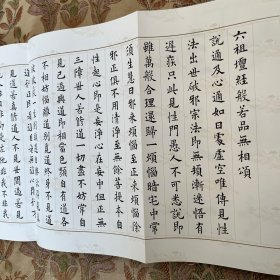 六祖壇經般若品無相頌
說通及心通如日處虛空唯傳見性
法出世破邪宗法即無頓漸迷悟有
遲疾只此見性門愚人不可悉說即
雖萬般合理還歸一煩惱暗宅中常
須生慧日邪來煩惱至正來煩惱除
邪正俱不用清淨至無餘菩提本自
性起心即是妄淨心在妄中但正無
三障世人若修道一切盡不妨常自
見己過與道即相當色類自有道各
不相妨惱離道別覓道終身不見道
見道若真修道人不見世間過若見